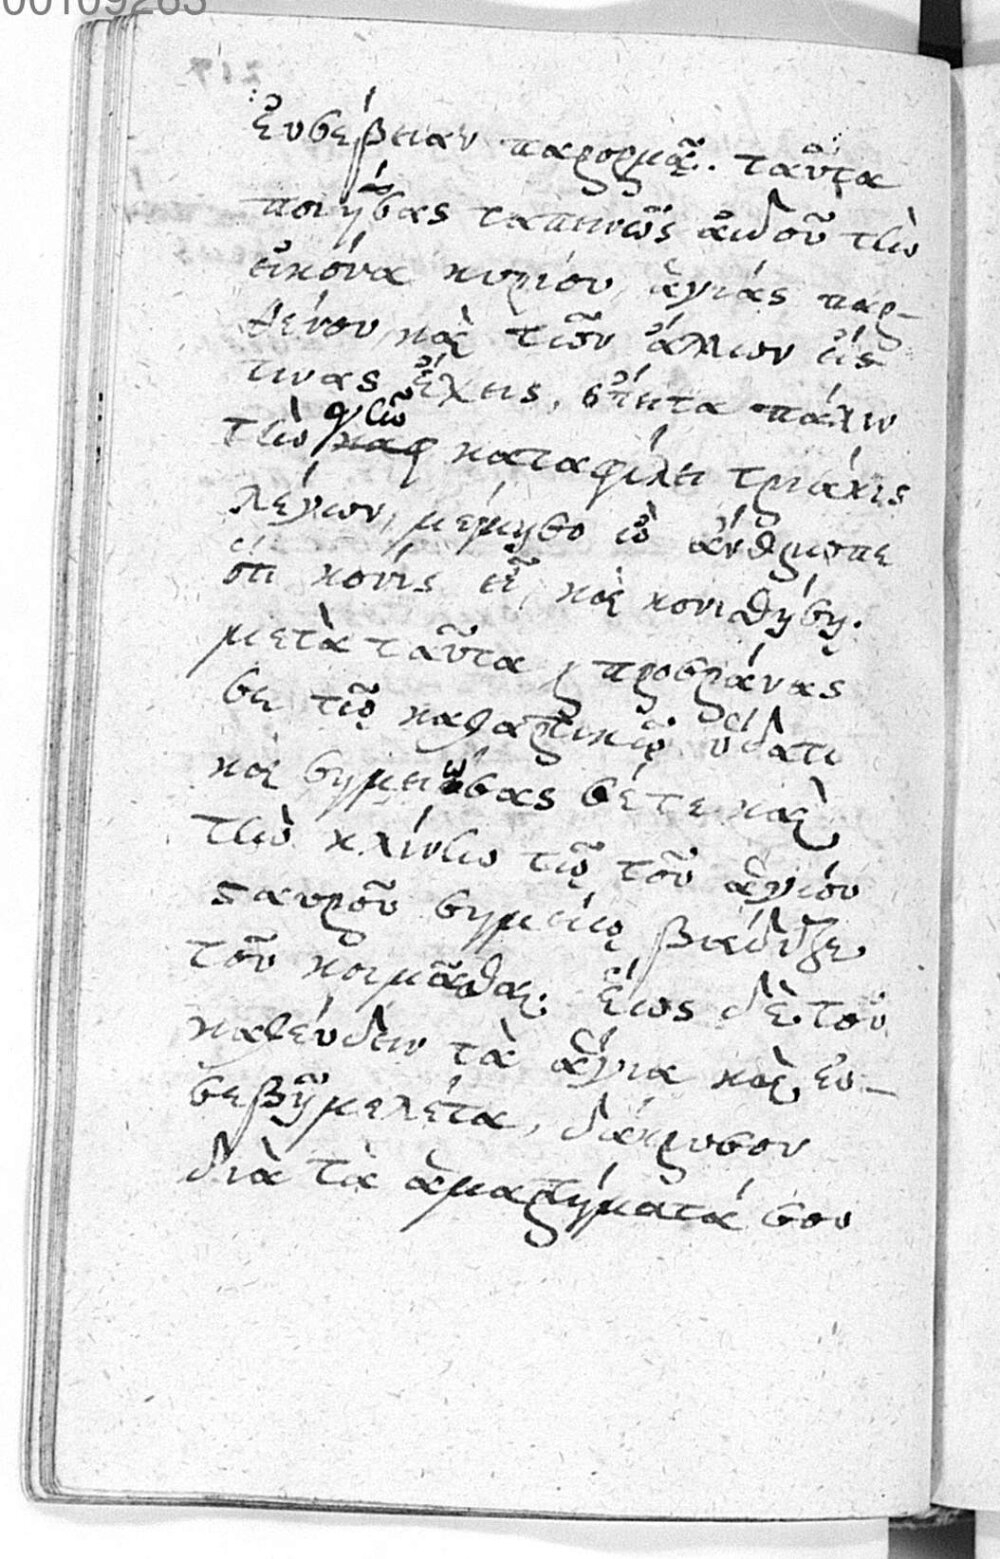 00109283
217
ἐυσέβειαν παρορμᾷ. ταῦτα
ποιήσας ταπεινῶς ἀιδοῦ τὴν
εἰκόνα κυρίου, ἁγιάς παρ-
θένου καὶ τῶν ἄλλων εἰς
τινας ἔχεις, ἔπειτα πάλιν
τὴν γῆν καταφίλει τριάκις
λέγων, μέμνησο ὦ ἄνθρωπε
ὅτι κονίς εἶ, καὶ κονισθήσῃ.
μετὰ ταῦτα προσράνας
σε τῷ καθαρτικῷ ὕδατι
καὶ σημειώσας σέτε καὶ
τὴν κλίνην τῷ τοῦ ἁγίου
σταυροῦ σημείῳ βιάδιζε
τοῦ κοιμᾶσθαι. ἕως δὲ τοῦ
καθέυδειν τὰ ἅγια καὶ ἐυ-
σεβῆ μελέτα, δάκρυσον
διὰ τὰ ἁμαρτήματά σου